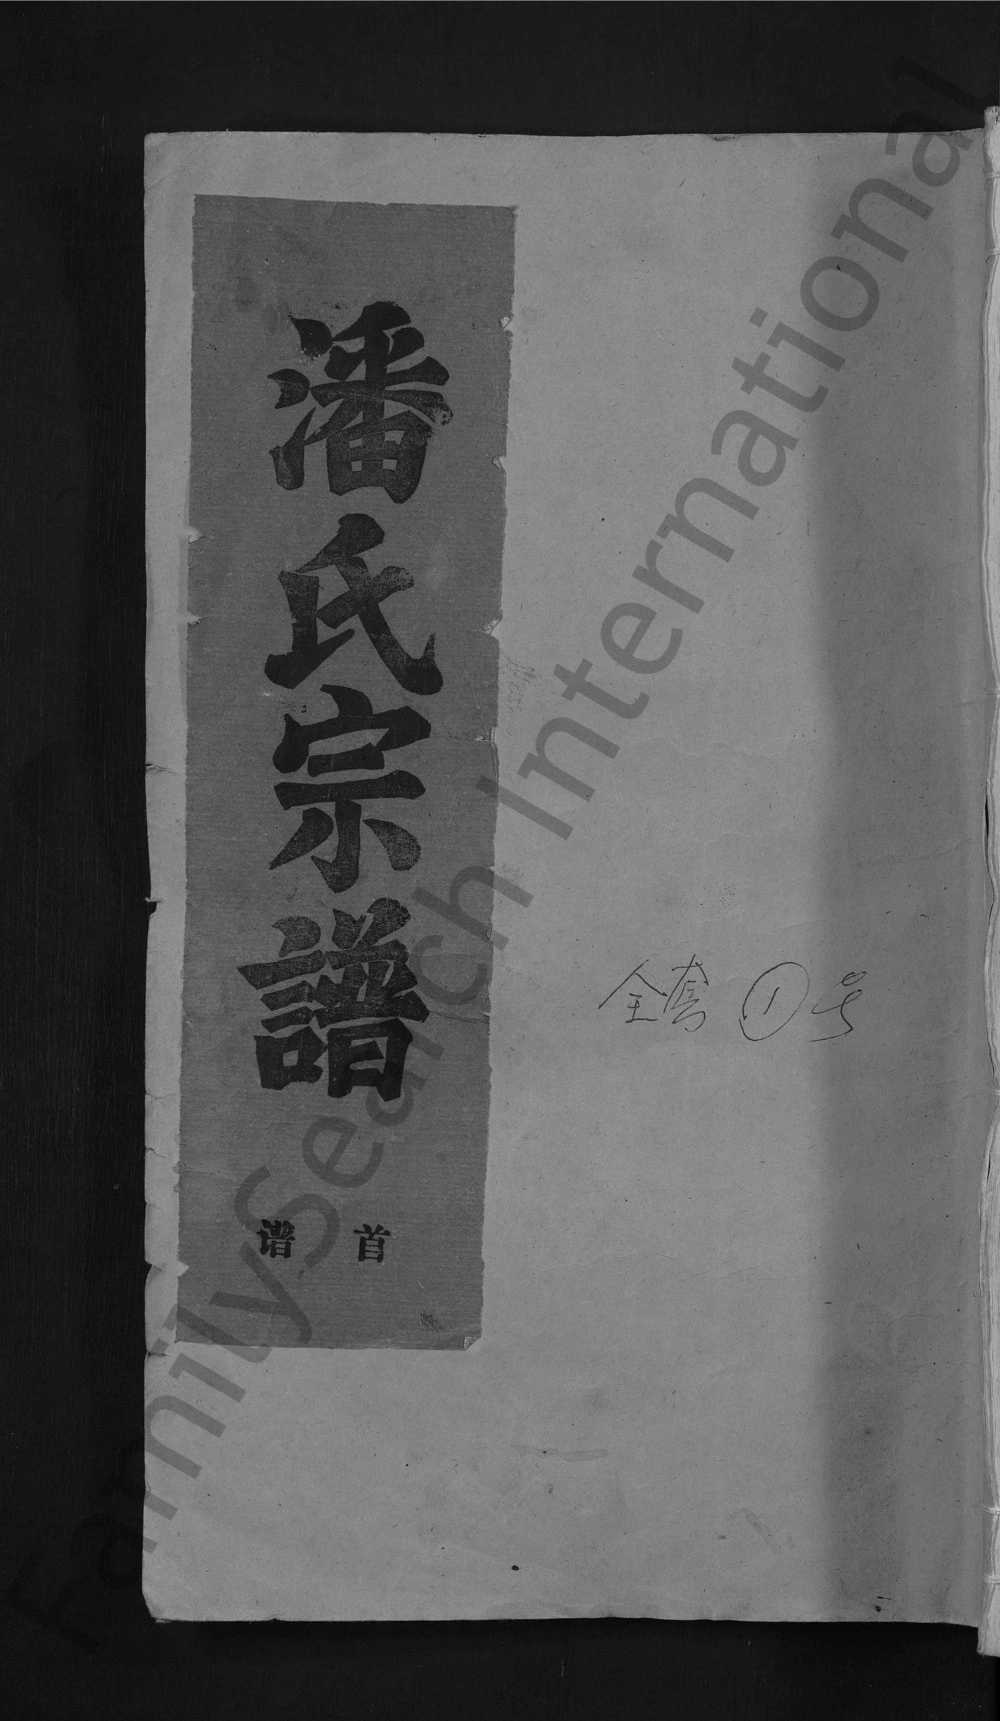 潘氏宗譜
首谱
全套 ① 号
FamilySearch International